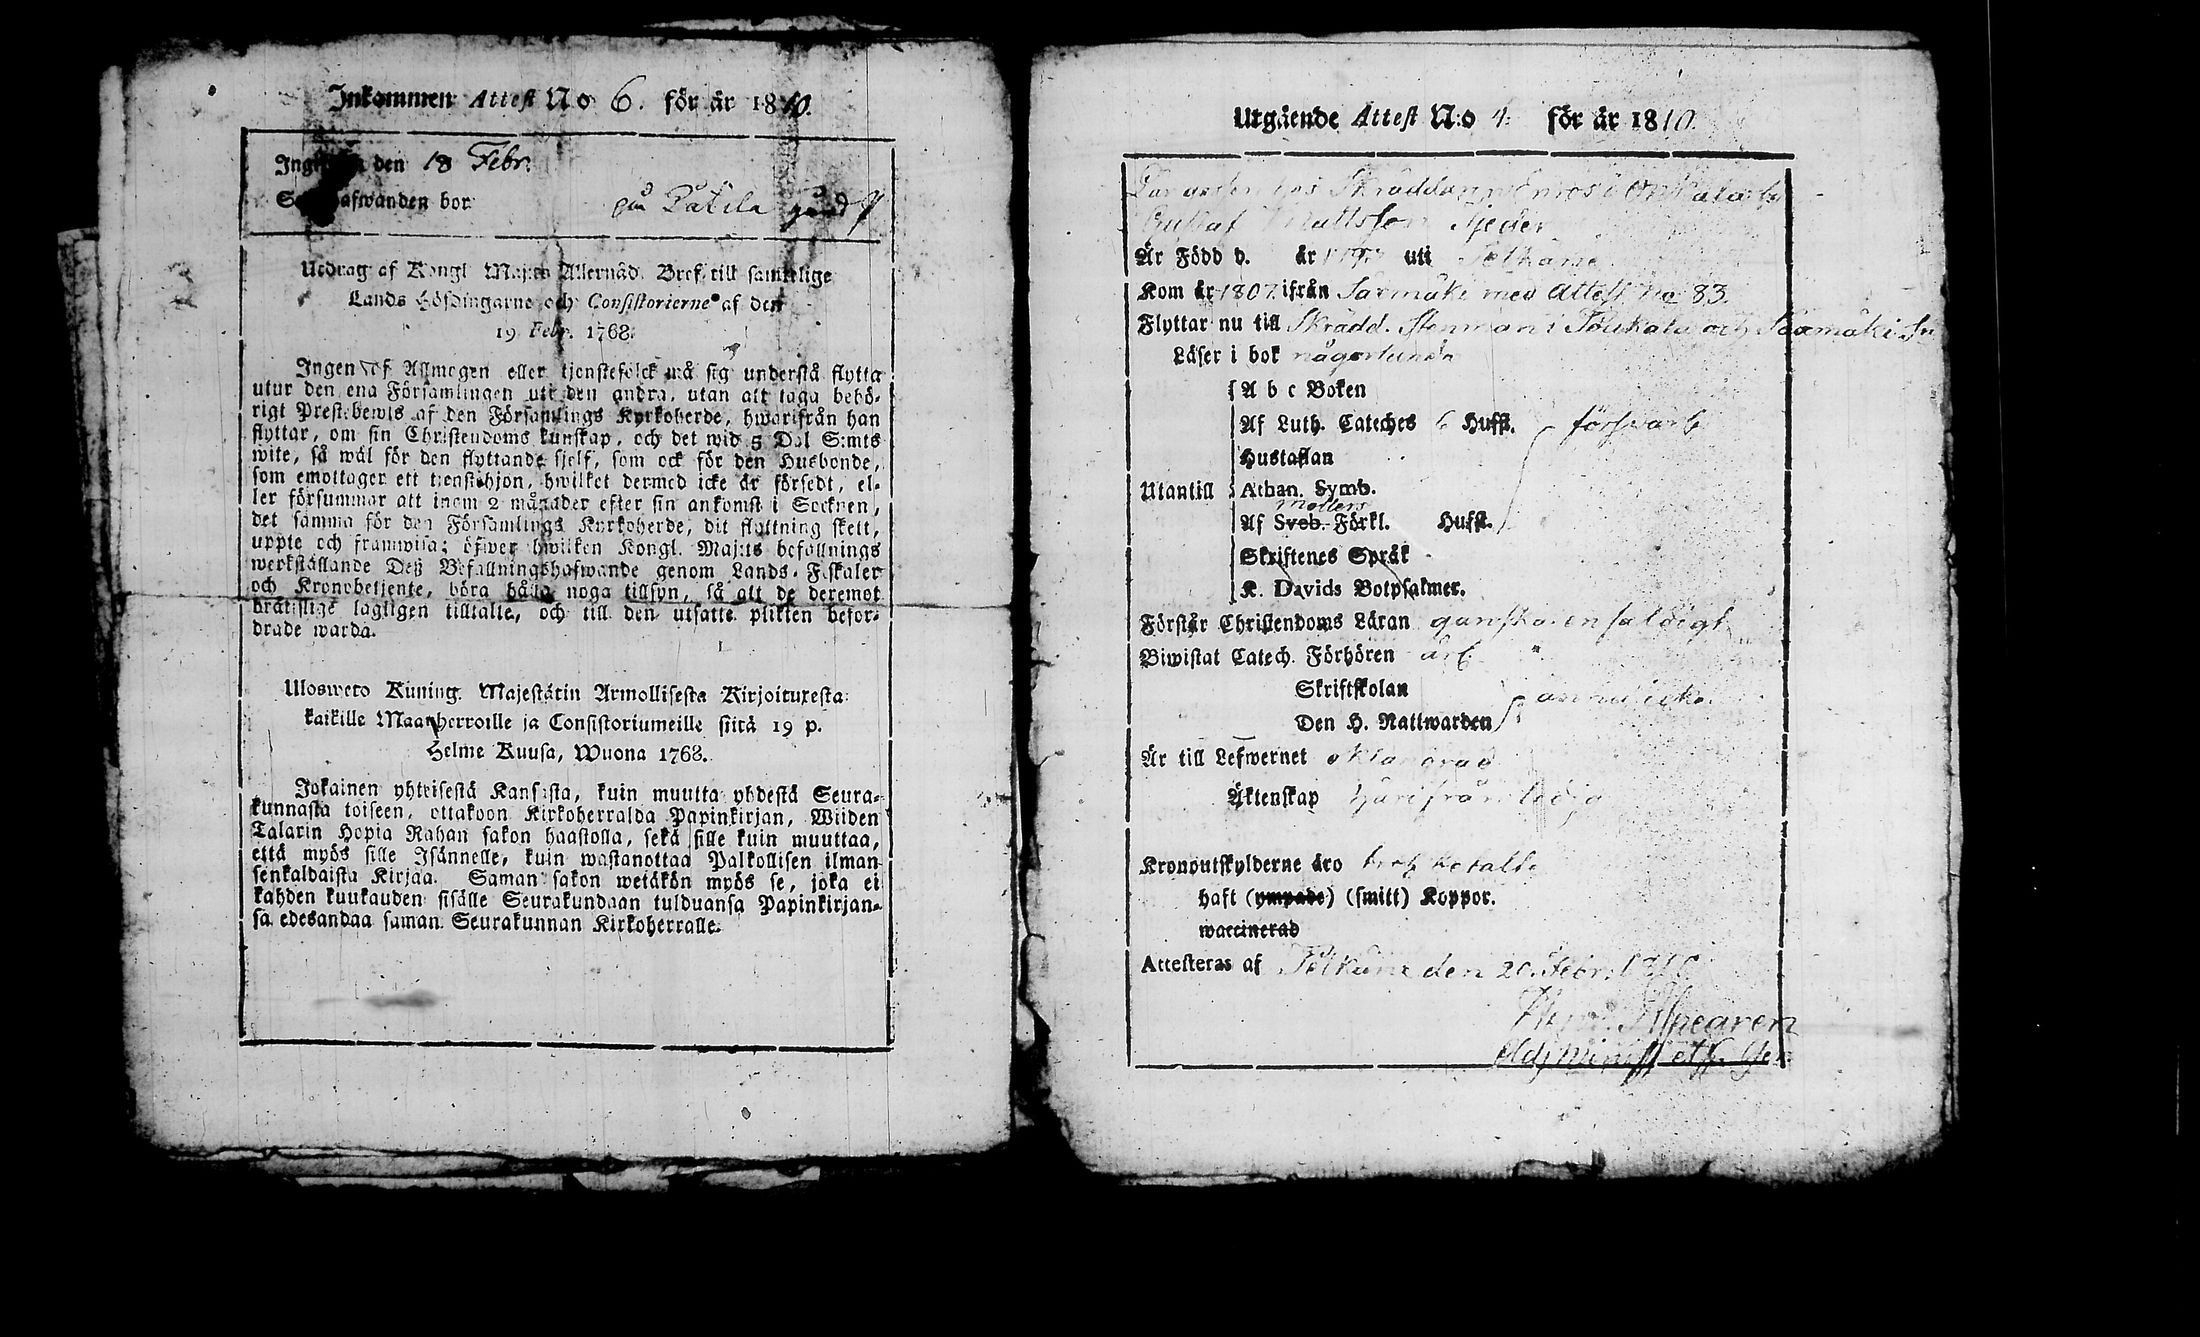 Inkommen Attest No 6. för år 1810.
den 18 Febr.
bor på Pätilä gård
Utdrag af Kongl Maj:ts Allernåd. Bref till samtelige
Lands Höfdingarne och Consistorierne af den
19 Febr. 1768.
Ingen af Allmogen eller tjenstefolck må sig understå flytta
utur den ena Församlingen uti den andra, utan att taga behö-
rigt Prestebewis af den Församlings Kyrkoherde, hwarifrån han
flyttar, om sin Christendoms kunskap, och det wid 5 Dal S:mts
wite, så wäl för den flyttande sjelf, som ock för den Husbonde,
som emottager ett tjenstehjon, hwilket dermed icke är försedt, el-
ler försummar att inom 2 månader efter sin ankomst i Socknen,
det samma för den Församlings Kyrkoherde, dit flyttning skett,
uppte och framwisa; öfwer hwilken Kongl. Maj:ts befallnings
werkställande Deß Befallningshafwande genom Lands-Fiskaler
och Kronobetjente, böra hålla noga tillsyn, så att de deremot
brätslige lagligen tilltalte, och till den utsatte plikten befor-
drade warda.
Uloswето Kuning. Majestätin Armollisesta Kirjoituxesta
kaikille Maanherroille ja Consistoriumeille siitä 19 p.
Helme Kuusa, Wuona 1768.
Jokainen yhteisestä Kansasta, kuin muutta yhdestä Seura-
kunnasta toiseen, ottakoon Kirkoherralda Papinkirjan, Wiiden
Talarin Hopia Rahan sakon haastolla, sekä sille kuin muuttaa,
että myös sille Isännelle, kuin wastanottaa Palkollisen ilman
senkaldaista Kirjaa. Saman sakon wetäkön myös se, joka ei
kahden kuukauden sisälle Seurakundaan tulduansa Papinkirjan-
sa edesandaa saman Seurakunnan Kirkoherralle.
Utgående Attest N:o 4: för år 1810.
hos Skräddaren i
Gustaf Mattsson
Är Född d. år uti Pelkäne
Kom år 1807 ifrån Säxmäki med Attest no 83.
Flyttar nu till Skrädd. Stenman i och Säxmäki Sn
Läser i bok någorlunda
A b c Boken
Af Luth. Cateches 6 Hufst. försvarl.
Hustaflan
Utantill Athan. Symb.
Möllers
Af Sveb. Förkl. Hufst.
Skriftenes Språk
K. Davids Botpsalmer.
Förstår Christendoms Läran ganska enfaldigt
Biwistat Catech. Förhören årl.
Skriftskolan
Den H. Nattwarden ännu icke.
Är till Lefwernet oklandrad
Äktenskap härifrån ledig
Kronoutskylderne äro betalte
haft (ympade) (smitt) Koppor.
waccinerad
Attesteras af Pelkäne den 20. Febr. 1810